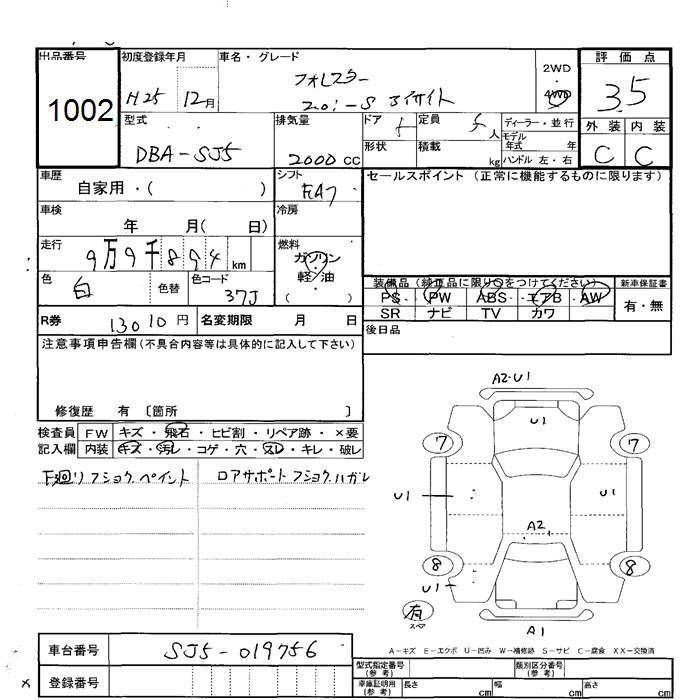 出品番号 初度登録年月 車名・グレード 2WD 評価点
1002 H25 12月 フォレスター 4WD 3.5
2.0i-S アイサイト
型式 排気量 ドア 定員 ディーラー・並行 外装 内装
DBA-SJ5 2000 cc 5 5人 モデル年式 年 C C
形状 積載 kg ハンドル 左・右
車歴 シフト セールスポイント(正常に機能するものに限ります)
自家用・( ) FA7
車検 冷房
年 月( 日)
走行 燃料
9万9千894km ガソリン
軽油
色 色替 色コード ( ) 装備品(純正品に限り○をつけてください) 新車保証書
白 37J PS PW ABS エアB AW 有・無
R券 13010円 名変期限 月 日 SR ナビ TV カワ
後日品
注意事項申告欄(不具合内容等は具体的に記入して下さい)
修復歴 有 〔箇所 〕
検査員 FW キズ・飛石・ヒビ割・リペア跡・×要
記入欄 内装 キズ・汚レ・コゲ・穴・スレ・キレ・破レ
下廻リフショク.ペイント ロアサポートフショクハガレ
A2-U1
U1
7 7
U1 U1
A2
8 8
U1
有
スペア
A1
A-キズ E-エクボ U-凹み W-補修跡 S-サビ C-腐食 XX-交換済
車台番号 SJ5-019756
型式指定番号(参考) 類別区分番号(参考)
登録番号
車庫証明用(参考) 長さ cm 幅 cm 高さ cm